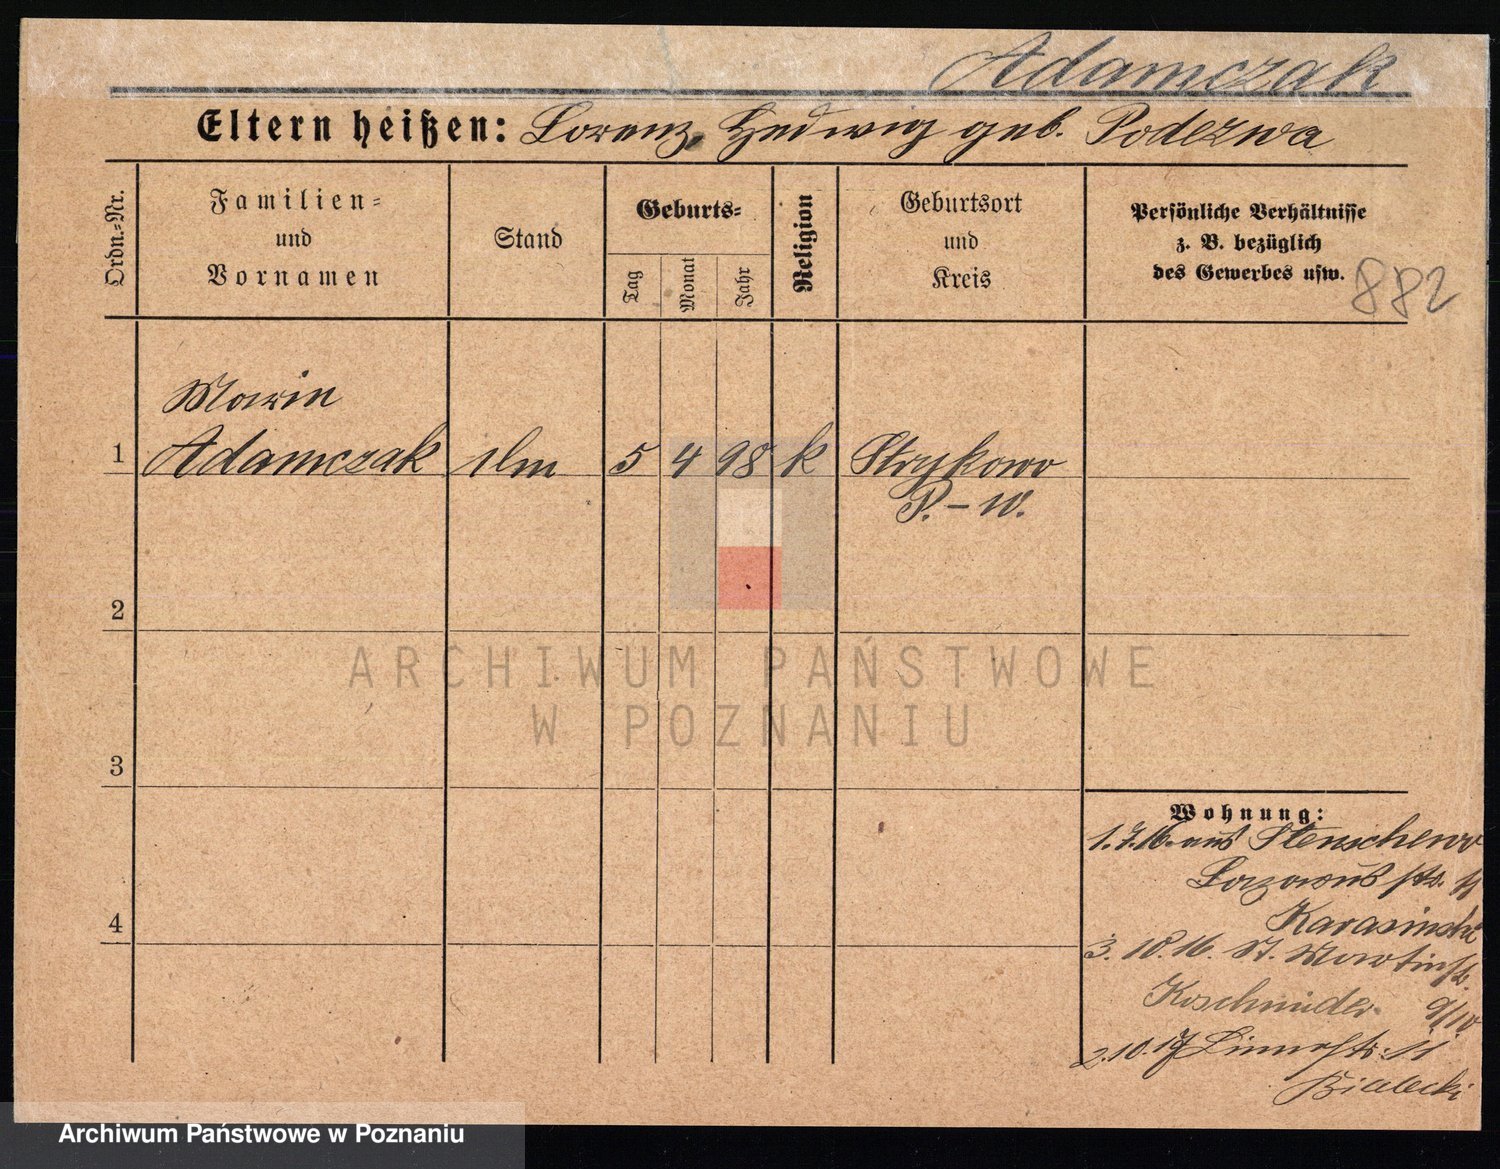 Adamczak
Eltern heißen: Lorenz, Hedwig geb. Podezwa
Ordn.-Nr.
Familien-
und
Vornamen
Stand
Geburts-
Tag
Monat
Jahr
Religion
Geburtsort
und
Kreis
Persönliche Verhältnisse
z. B. bezüglich
des Gewerbes usw.
882
Marin
1 Adamczak 5 4 98 k Strykowo
P.-W.
2
3
4
ARCHIWUM PAŃSTWOWE
W POZNANIU
Wohnung:
1.7.16. aus Stenschewo
Lazarus str.
Karasinski
3. 10. 16. St. Martinstr.
Koschmider 9/10
2.10.17 11
Bialecki
Archiwum Państwowe w Poznaniu